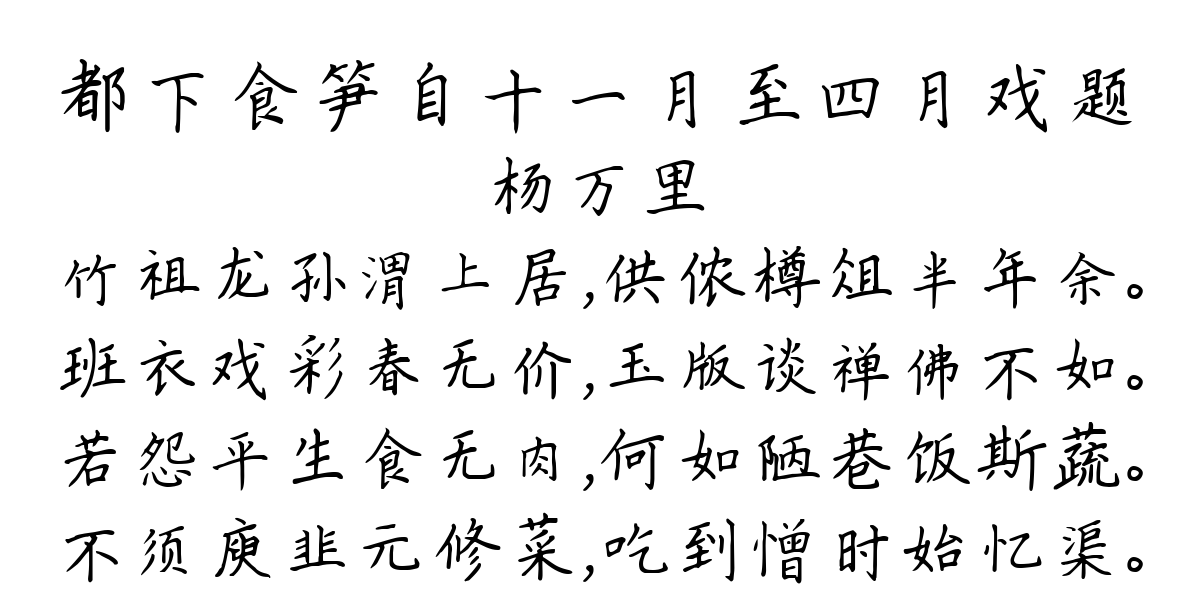 都下食笋自十一月至四月戏题
杨万里
竹祖龙孙渭上居,供侬樽俎半年余。
班衣戏彩春无价,玉版谈禅佛不如。
若怨平生食无肉,何如陋巷饭斯蔬。
不须庾韭元修菜,吃到憎时始忆渠。